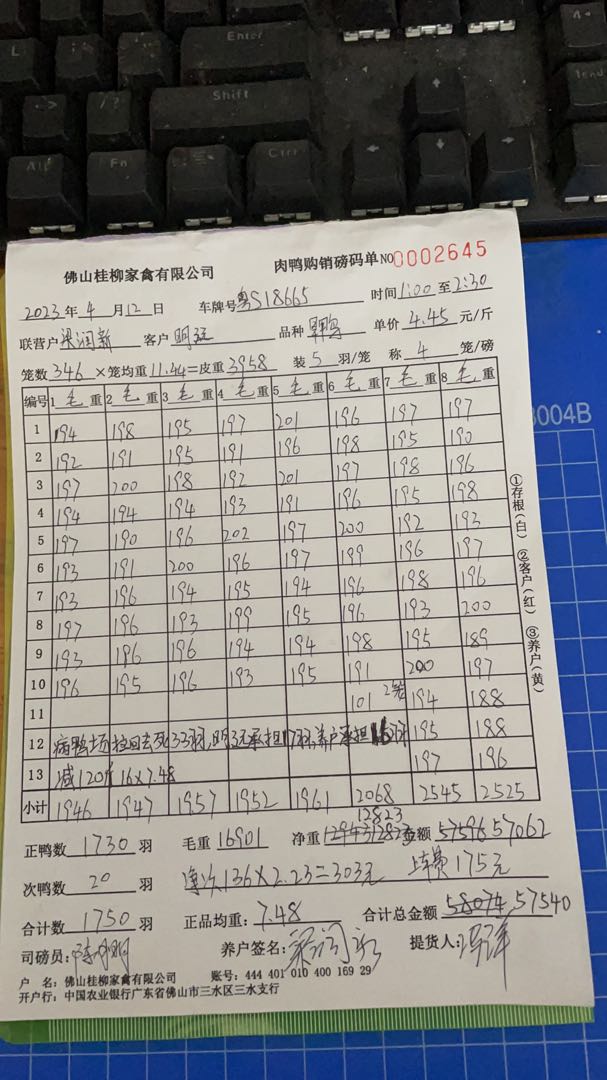 Enter
Shift
Alt
Fn
Ctrl
End
3004B
佛山桂柳家禽有限公司 肉鸭购销磅码单 NO 0002645
2023年 4 月 12 日 车牌号 粤S18665 时间 1:00 至 2:30
联营户 梁润新 客户 明记 品种 单价 4.45 元/斤
笼数 346 ×笼均重 11.44 =皮重 3958 装 5 羽/笼 称 4 笼/磅
编号 1 毛 重 2 毛 重 3 毛 重 4 毛 重 5 毛 重 6 毛 重 7 毛 重 8 毛 重
1 194 198 195 197 201 196 197 197
2 192 191 195 191 196 198 195 190
3 197 200 198 192 201 197 198 196
4 194 194 194 193 191 196 195 198
5 197 190 196 202 197 200 192 193
6 193 191 200 196 197 199 196 197
7 193 196 194 195 194 196 198 196
8 197 196 193 199 195 196 193 200
9 193 196 196 194 194 198 195 189
10 196 195 196 193 195 191 200 197
11 101 2笼 194 188
12 病鸭场拉回去死33羽,明记承担17羽,养户承担16羽 195 188
13 减120斤 16×7.48 197 196
小计 1946 1947 1957 1952 1961 2068 2545 2525
12823
正鸭数 1730 羽 毛重 16901 净重 12943 金额 57596 57062
次鸭数 20 羽 净次136×2.23=303元 上车费175元
合计数 1750 羽 正品均重: 7.48 合计总金额 58074 57540
司磅员: 养户签名: 梁润新 提货人:
户 名: 佛山桂柳家禽有限公司 账号: 444 401 010 400 169 29
开户行: 中国农业银行广东省佛山市三水区三水支行
①存根(白) ②客户(红) ③养户(黄)